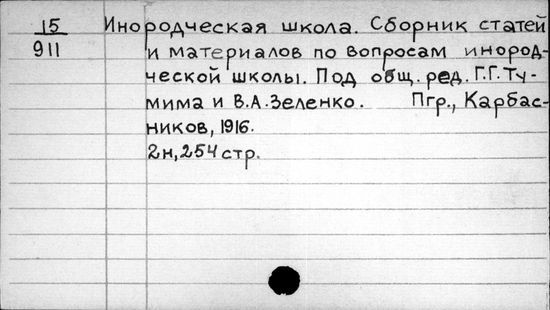 15 Инородческая школа. Сборник статей
911 и материалов по вопросам инород-
ческой школы. Под общ. ред. Г.Г. Ту-
мима и В.А. Зеленко. Пгр., Карбас-
ников, 1916.
2н, 254 стр.